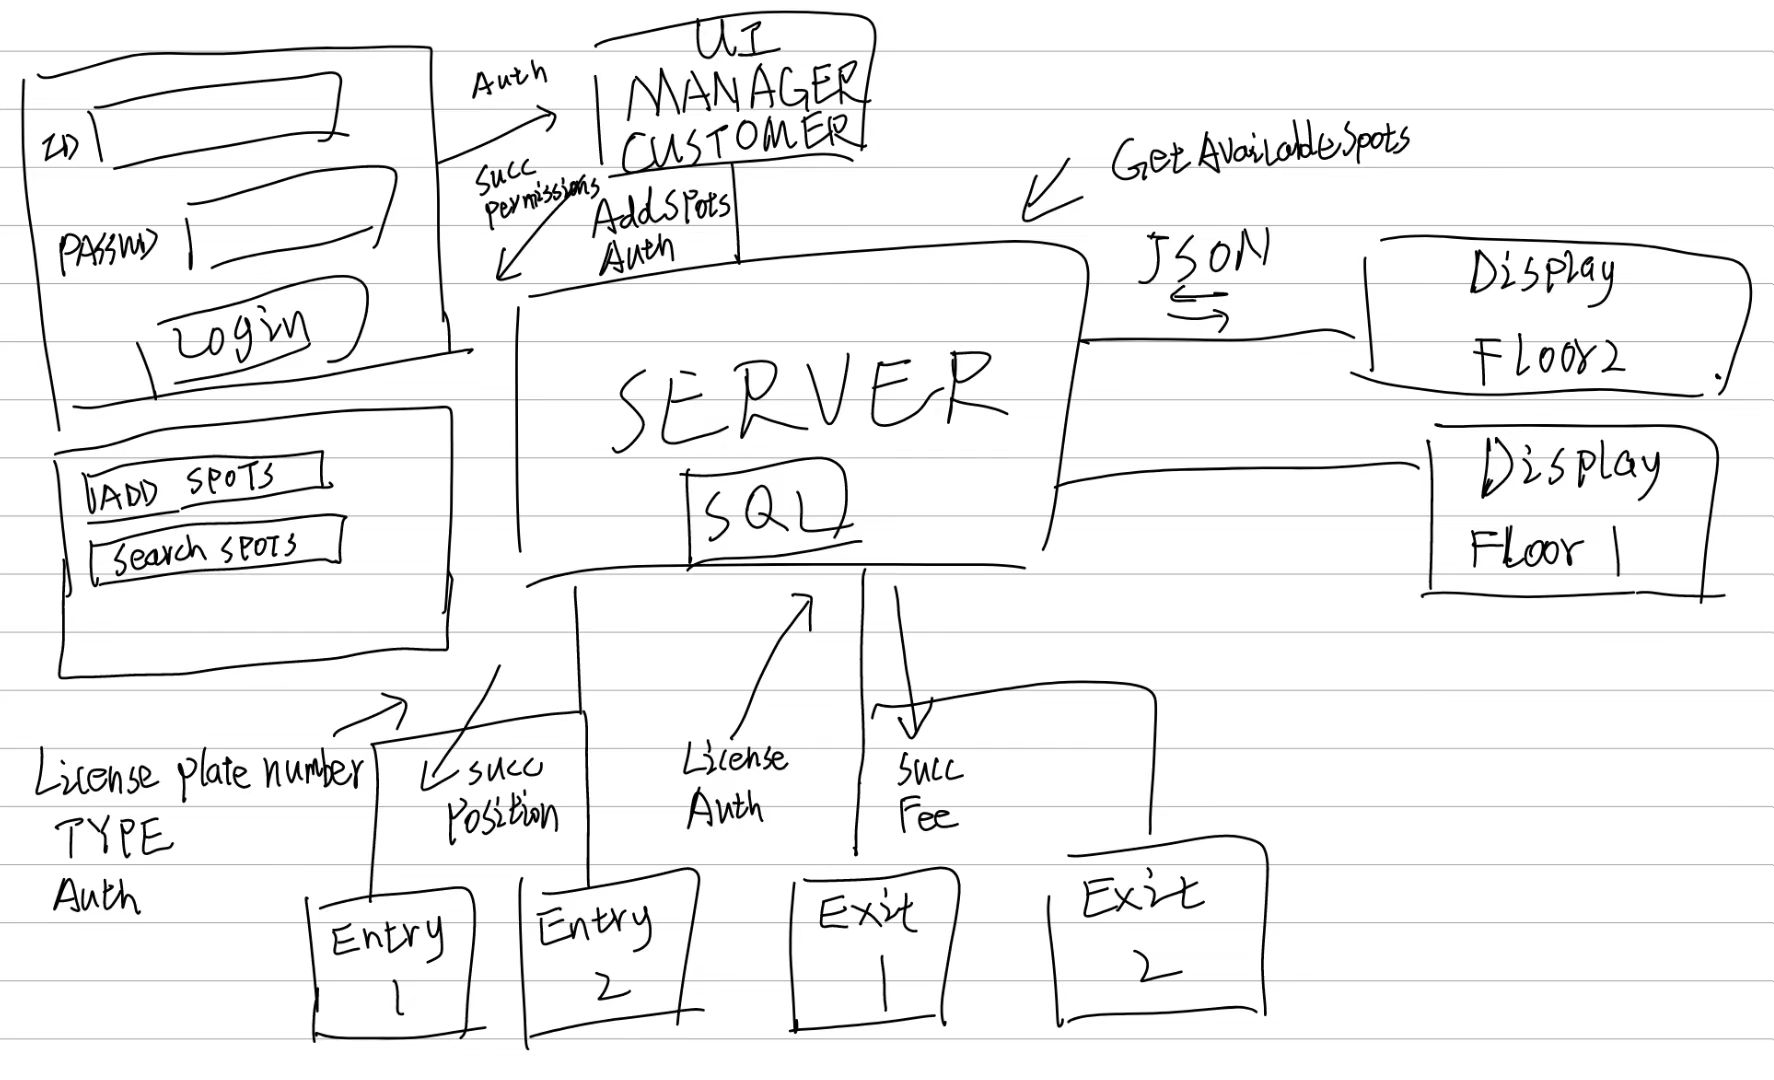 ID
PASSWD
Login
ADD SPOTS
Search SPOTS
Auth
Succ
Permissions
UI
MANAGER
CUSTOMER
AddSpots
Auth
GetAvailableSpots
JSON
SERVER
SQL
Display
Floor2
Display
Floor 1
License plate number
TYPE
Auth
Succ
Position
License
Auth
Succ
Fee
Entry
1
Entry
2
Exit
1
Exit
2